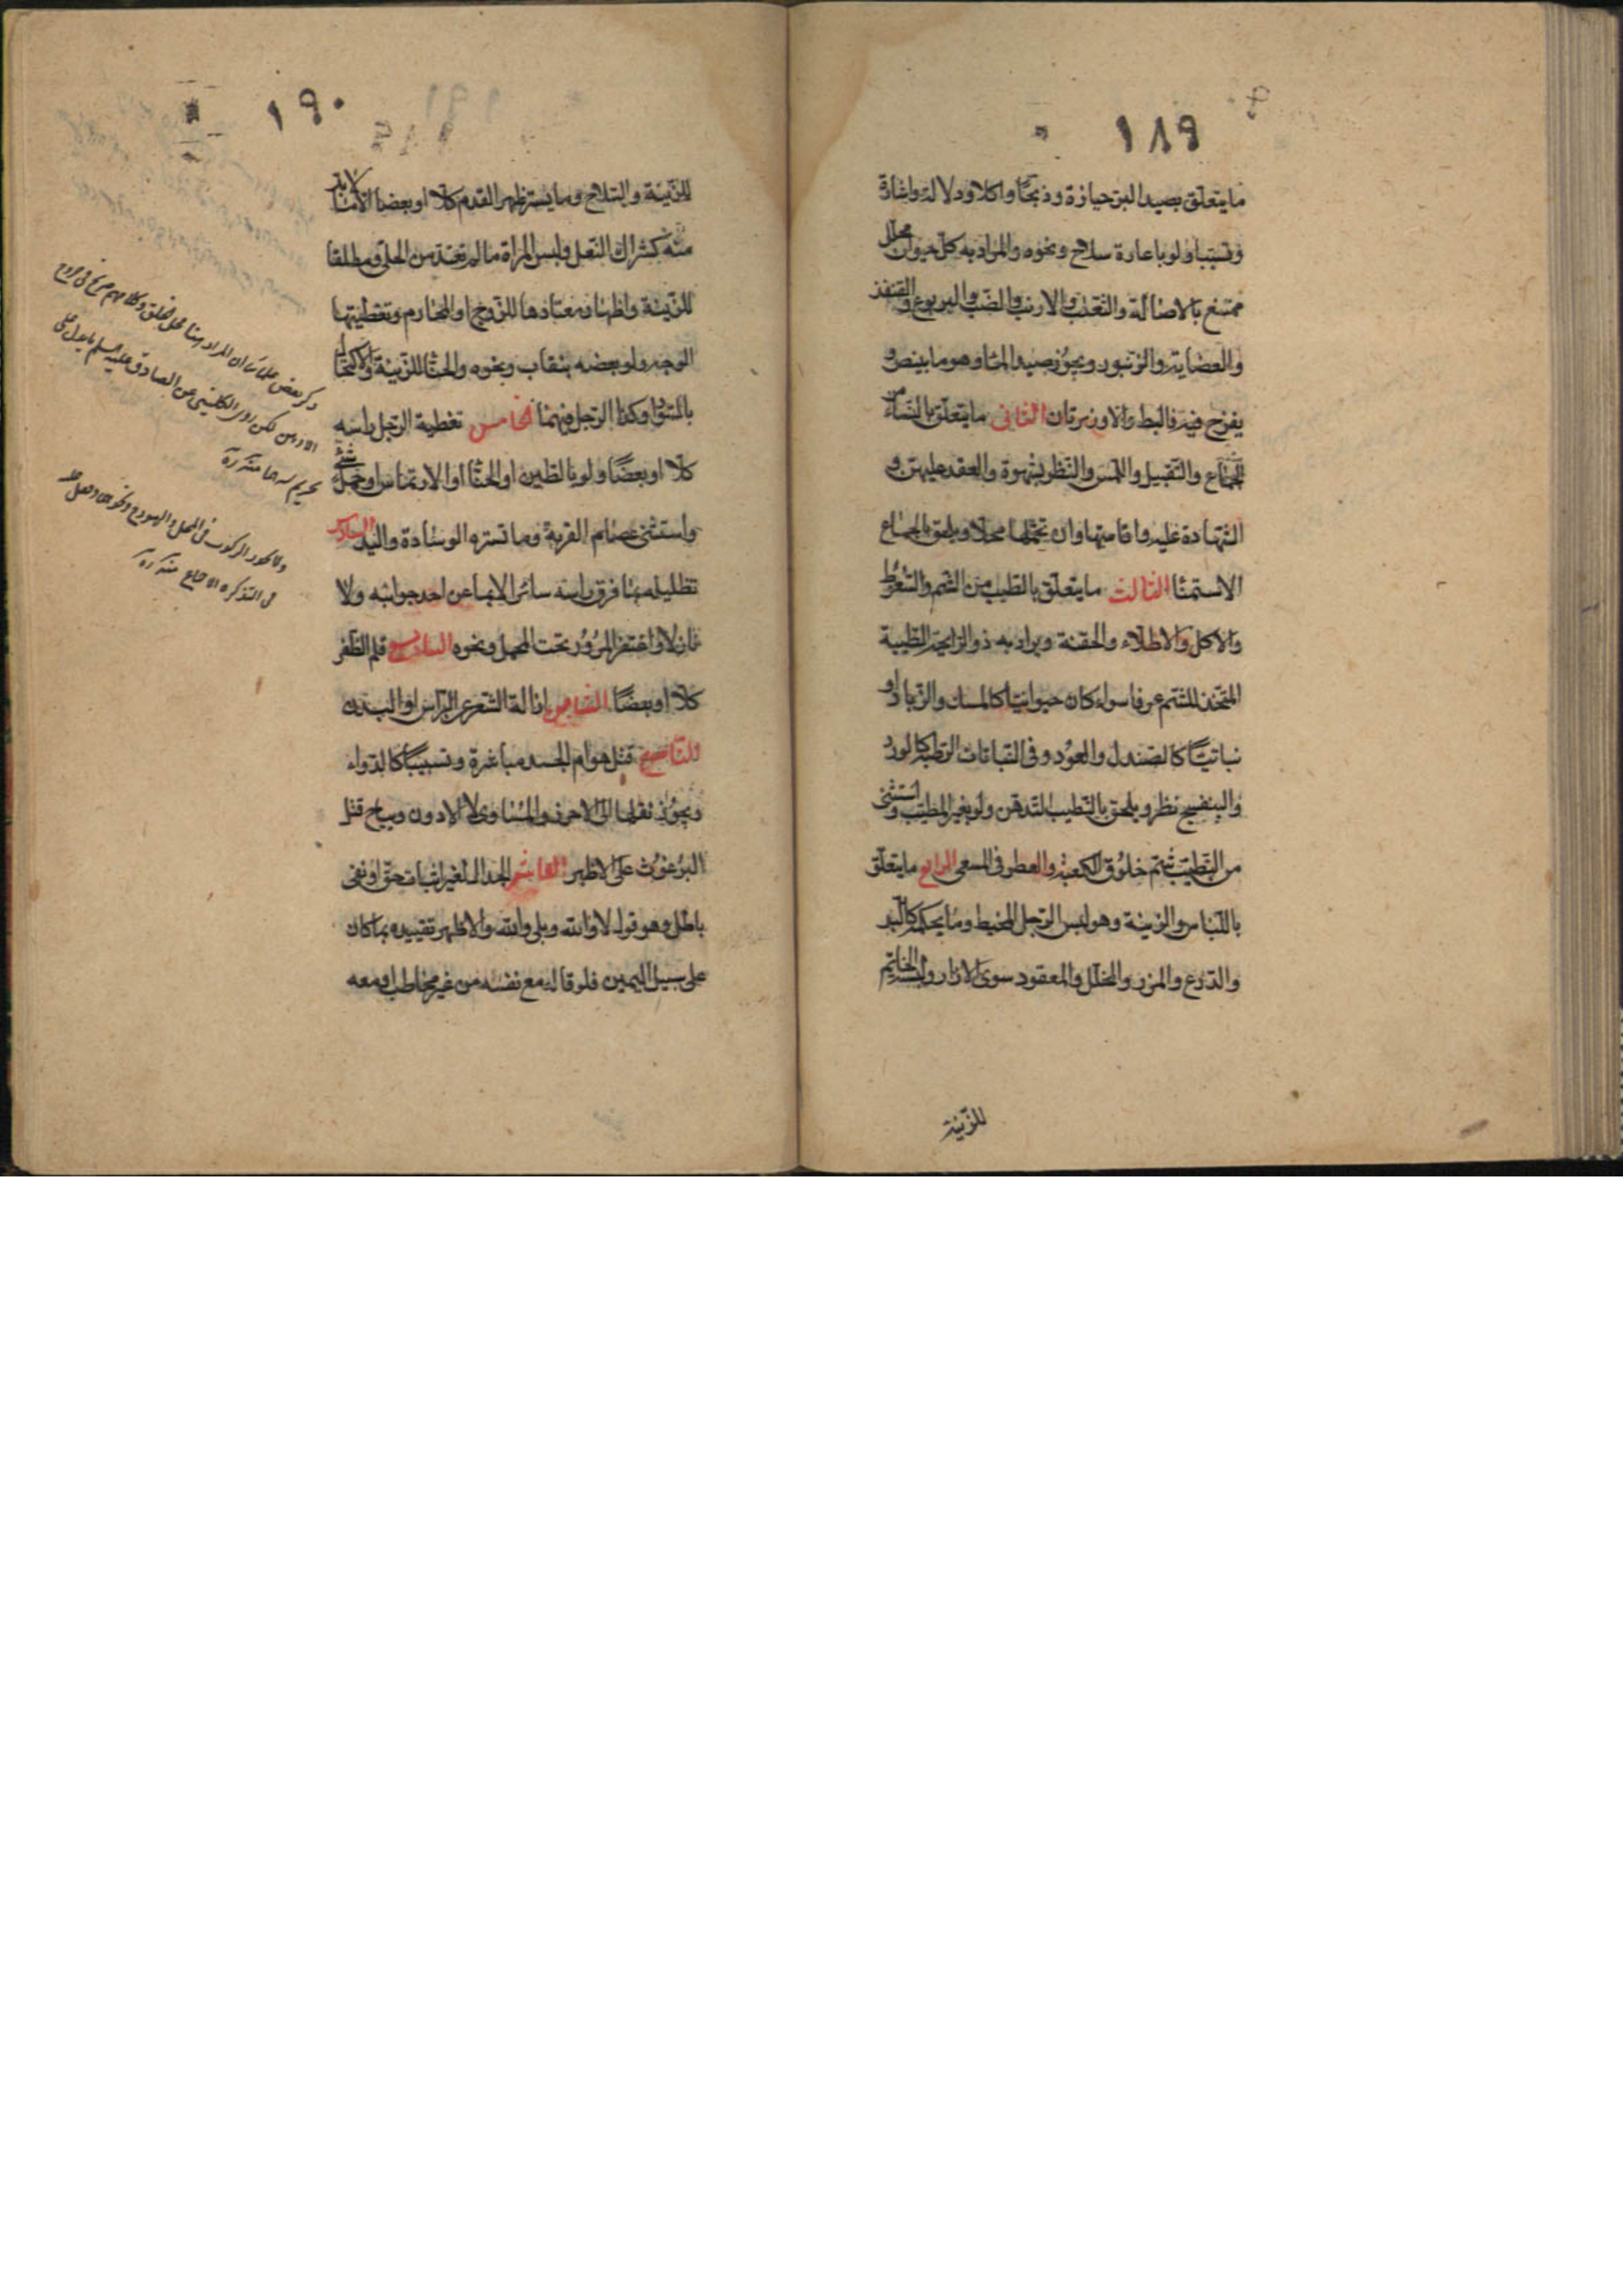 ١٨٩
ما يتعلق بصيد البر حيازة وذبحا واكلا ودلالة واشارة
وتسبيبا ولو باعارة سلاح ونحوه والمراد به كل حيوان محلل
ممتنع بالاصالة والثعلب والارنب والضب واليربوع والقنفذ
والعضاية والزنبور ويجوز صيد الماء وهو ما يبيض و
يفرخ فيه فالبط والاوز بريان الثاني ما يتعلق بالنساء من
الجماع والتقبيل واللمس والنظر بشهوة والعقد عليهن و
الشهادة عليه واقامتها وان تحملها محلا ويلحق بالجماع
الاستمناء الثالث ما يتعلق بالطيب من الشم والسعوط
والاكل والاطلاء والحقنة ويراد به ذو الرايحة الطيبة
المتخذ للشم عرفا سواء كان حيوانيا كالمسك والزباد او
نباتيا كالصندل والعود وفي النباتات الرطبة كالورد
والبنفسج نظر ويلحق بالتطيب التدهن ولو بغير المطيب واستثنى
من التطيب شم خلوق الكعبة والعطر في المسعى الرابع ما يتعلق
باللباس والزينة وهو لبس الرجل المخيط وما بحكمه كاللبد
والدرع والمزرر والمخلل والمعقود سوى الازار ولبسه الخاتم
للزينة
١٩٠
للزينة والسلاح وما يستر ظهر القدم كلا او بعضا الا ما لا بد
منه كشراك النعل ولبس المراة ما لم تعتد من الحلي ومطلقا
للزينة واظهار معتادها للزوج او المحارم وتغطيتها
الوجه ولو بعضه بنقاب ونحوه والحنا للزينة والاكتحال
بالسواد وكذا الرجل فيهما الخامس تغطية الرجل راسه
كلا او بعضا ولو بالطين او الحنا او الارتماس او حمل شئ
واستثنى عصام القربة وما تستره الوسادة واليد السادس
تظليله بما فوق راسه سائرا لا بما عن احد جوانبه ولا
نازلا واغتفر المرور تحت المحمل ونحوه السابع قلم الظفر
كلا او بعضا الثامن ازالة الشعر عن الراس او البدن
التاسع قتل هوام الجسد مباشرة وتسبيبا كالدواء
ويجوز نقلها الى الاحرز والمساوي لا الادون ويباح قتل
البرغوث على الاظهر العاشر الجدال لغير اثبات حق او نفي
باطل وهو قول لا والله وبلى والله والاظهر تقييده بما كان
على سبيل اليمين فلو قاله مع نفسه من غير مخاطب او معه
ذكر بعض علمائنا ان المراد هنا
الادهن لكن روى الكليني عن الصادق عليه السلم ما يدل على
تحريم منه
ولا يجوز الركوب في المحمل والهودج ونحوهما
في التذكرة الاجماع منه